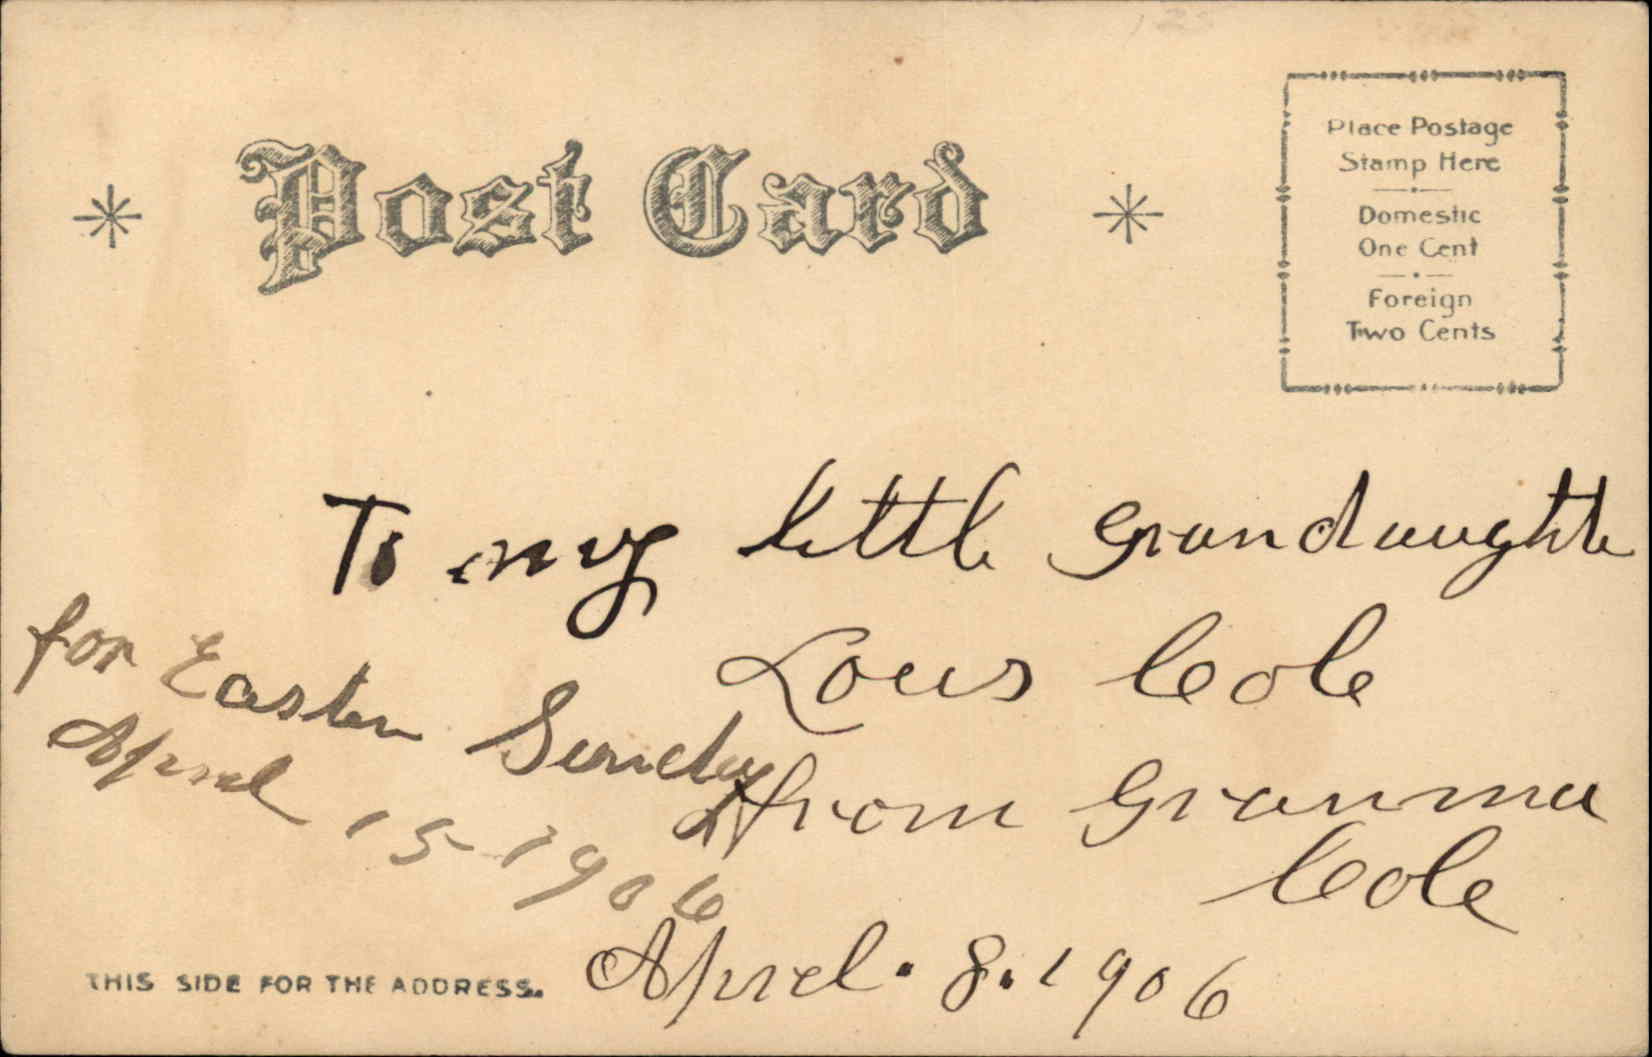 Post Card
Place Postage
Stamp Here
Domestic
One Cent
Foreign
Two Cents
To my little Grandaughte
Lous Cole
from Granma
Cole
April. 8. 1906
for Easter Sunday
April 15 1906
THIS SIDE FOR THE ADDRESS.